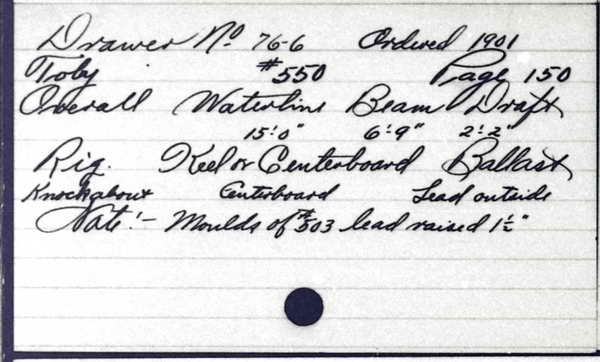 Drawer No 76-6 Ordered 1901
Toby #550 Page 150
Overall Waterline Beam Draft
15'-0" 6'-9" 2'-2"
Rig. Keel or Centerboard Ballast
Knockabout Centerboard Lead outside
Note:- Moulds of #503 lead raised 1½"